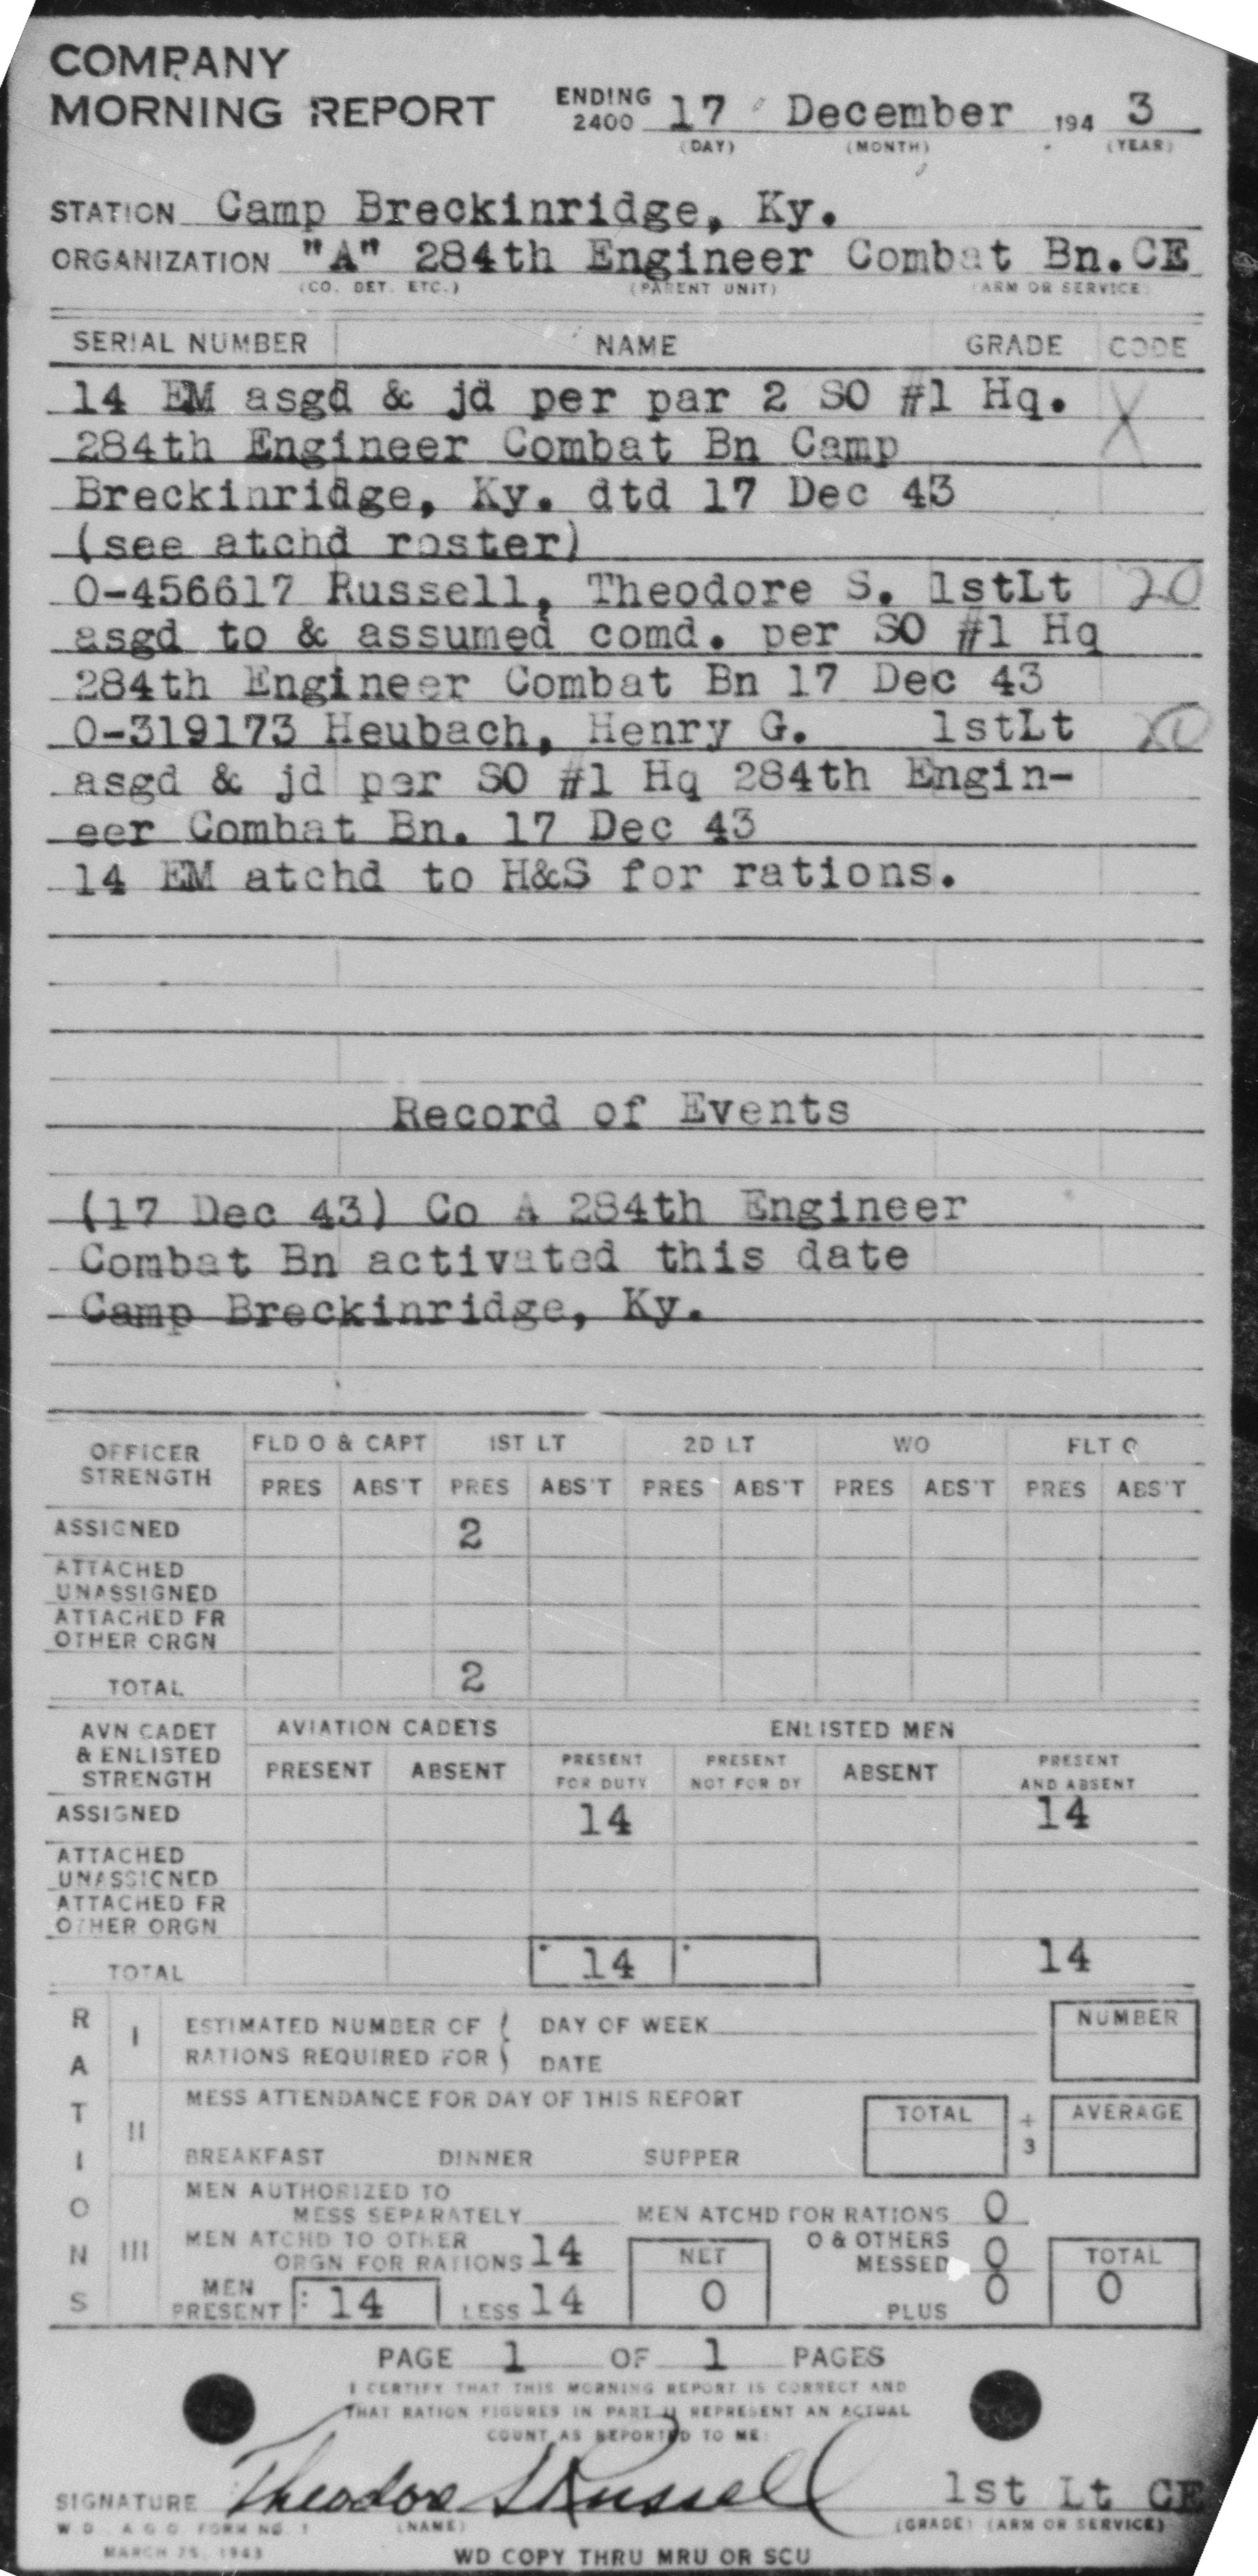 COMPANY
MORNING REPORT ENDING 2400 17 December 194 3
(DAY) (MONTH) (YEAR)
STATION Camp Breckinridge, Ky.
ORGANIZATION "A" 284th Engineer Combat Bn.CE
(CO. DET. ETC.) (PARENT UNIT) (ARM OR SERVICE)
SERIAL NUMBER NAME GRADE CODE
14 EM asgd & jd per par 2 SO #1 Hq. X
284th Engineer Combat Bn Camp
Breckinridge, Ky. dtd 17 Dec 43
(see atchd roster)
O-456617 Russell, Theodore S. 1stLt 20
asgd to & assumed comd. per SO #1 Hq
284th Engineer Combat Bn 17 Dec 43
O-319173 Heubach, Henry G. 1stLt
asgd & jd per SO #1 Hq 284th Engin-
eer Combat Bn. 17 Dec 43
14 EM atchd to H&S for rations.
Record of Events
(17 Dec 43) Co A 284th Engineer
Combat Bn activated this date
Camp Breckinridge, Ky.
OFFICER STRENGTH FLD O & CAPT 1ST LT 2D LT WO FLT O
PRES ABS'T PRES ABS'T PRES ABS'T PRES ABS'T PRES ABS'T
ASSIGNED 2
ATTACHED
UNASSIGNED
ATTACHED FR
OTHER ORGN
TOTAL 2
AVN CADET & ENLISTED STRENGTH AVIATION CADETS ENLISTED MEN
PRESENT ABSENT PRESENT FOR DUTY PRESENT NOT FOR DY ABSENT PRESENT AND ABSENT
ASSIGNED 14 14
ATTACHED
UNASSIGNED
ATTACHED FR
OTHER ORGN
TOTAL 14 14
RATIONS
I ESTIMATED NUMBER OF DAY OF WEEK NUMBER
RATIONS REQUIRED FOR DATE
II MESS ATTENDANCE FOR DAY OF THIS REPORT
TOTAL ÷ 3 AVERAGE
BREAKFAST DINNER SUPPER
III MEN AUTHORIZED TO
MESS SEPARATELY MEN ATCHD FOR RATIONS 0
MEN ATCHD TO OTHER
ORGN FOR RATIONS 14 NET O & OTHERS MESSED 0 TOTAL
MEN PRESENT 14 LESS 14 0 PLUS 0 0
PAGE 1 OF 1 PAGES
I CERTIFY THAT THIS MORNING REPORT IS CORRECT AND
THAT RATION FIGURES IN PART II REPRESENT AN ACTUAL
COUNT AS REPORTED TO ME:
SIGNATURE Theodore S Russell 1st Lt CE
(NAME) (GRADE) (ARM OR SERVICE)
W D A G O FORM NO. 1
MARCH 25, 1943
WD COPY THRU MRU OR SCU